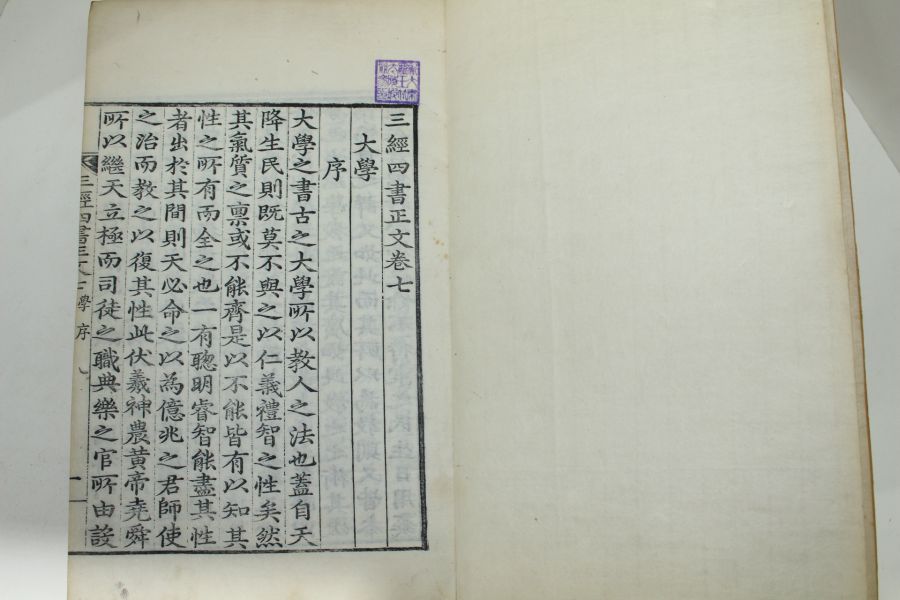 三經四書正文卷七
大學
序
大學之書古之大學所以教人之法也蓋自天
降生民則既莫不與之以仁義禮智之性矣然
其氣質之禀或不能齊是以不能皆有以知其
性之所有而全之也一有聰明睿智能盡其性
者出於其間則天必命之以為億兆之君師使
之治而教之以復其性此伏羲神農黃帝堯舜
所以繼天立極而司徒之職典樂之官所由設
三經四書正文七 學 序
一